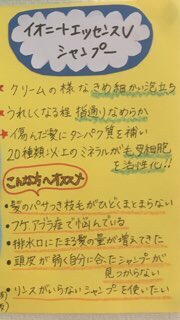 イオニートエッセンスV
シャンプー
★ クリームの様なきめ細かい泡立ち
★ うれしくなる程 指通りなめらか
★ 傷んだ髪にタンパク質を補い
20種類以上のミネラルが毛母細胞
を活性化!!
こんな方へオススメ
・髪のパサつき枝毛がひどくまとまらない
・フケ、アブラ症で悩んでいる
・排水口にたまる髪の量が増えてきた
・頭皮が弱く自分に合ったシャンプーが
見つからない
・リンスがいらないシャンプーを使いたい